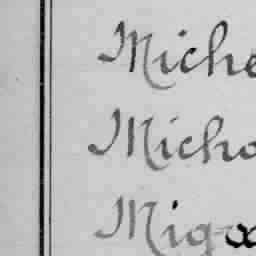 Miche
Micho
Migo